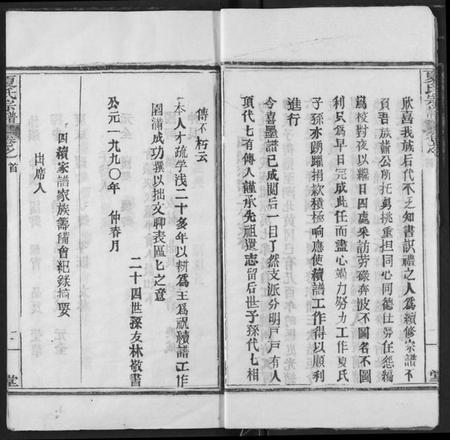 夏氏宗譜
卷之首
欣喜我族后代不乏知書識禮之人為續修宗譜不
負吾族譜公所托勇挑重担同心同德任勞任怨編
為校對夜以繼日四處采訪勞碌奔波不圖名不圖
利只為早日完成此任而盡心竭力努力工作夏氏
子孫亦踴躍捐欵積極响應使續譜工作得以順利
進行
今喜墨譜已成閱后一目了然支派分明戶戶有人
頂代七有傳人謹承先祖遺志留后世子孫代七相
傳不朽云
本人才疏学浅二十多年以耕為主為祝續譜工作
圓滿成功撰以拙文聊表區七之意
二十四世孫友林敬書
公元一九九〇年 仲春月
四續家譜家族籌備會紀錄摘要
出席人
夏氏宗譜
卷之首
二
堂